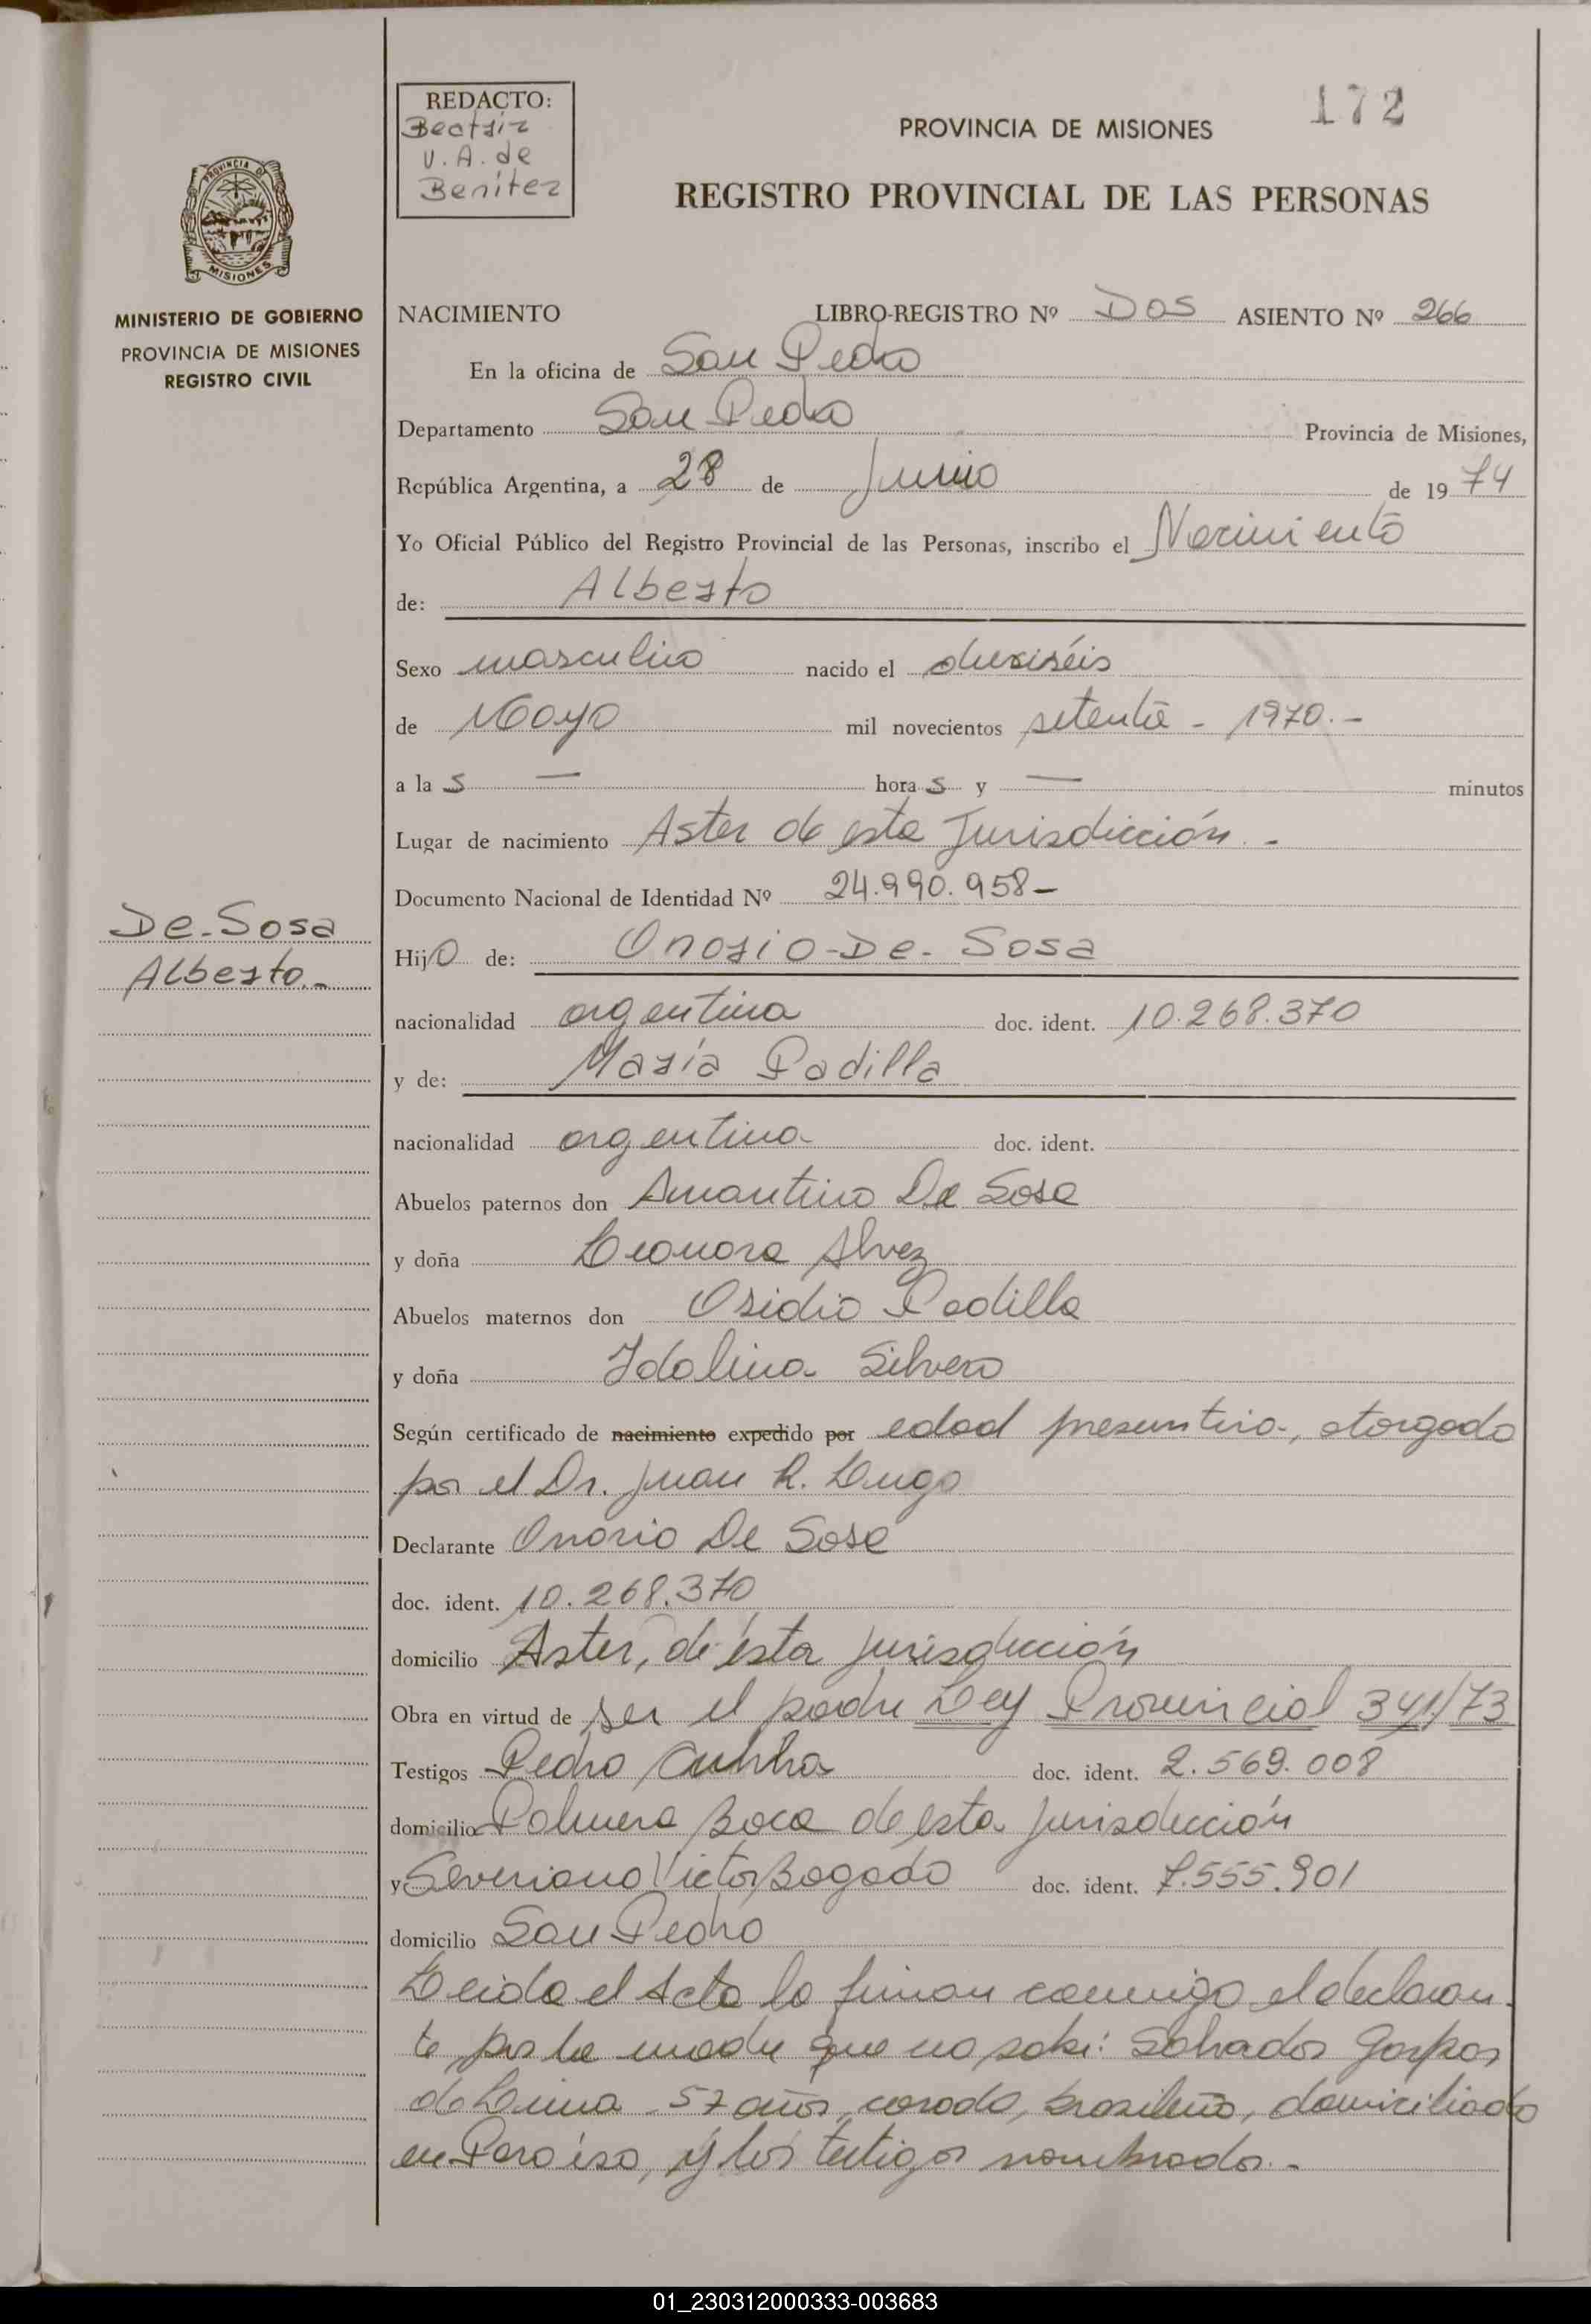 172
REDACTO:
Beatriz
V. A. de
Benítez
PROVINCIA DE MISIONES
REGISTRO PROVINCIAL DE LAS PERSONAS
PROVINCIA DE
MISIONES
MINISTERIO DE GOBIERNO
PROVINCIA DE MISIONES
REGISTRO CIVIL
NACIMIENTO LIBRO-REGISTRO Nº DOS ASIENTO Nº 266
En la oficina de San Pedro
Departamento San Pedro Provincia de Misiones,
República Argentina, a 28 de Junio de 1974
Yo Oficial Público del Registro Provincial de las Personas, inscribo el Nacimiento
de: Alberto
Sexo masculino nacido el dieciséis
de Mayo mil novecientos setenta - 1970.-
a las — horas y — minutos
Lugar de nacimiento Aster de esta Jurisdicción.-
Documento Nacional de Identidad Nº 24.990.958-
De-Sosa
Alberto.-
Hijo de: Onorio-De-Sosa
nacionalidad argentina doc. ident. 10.268.370
y de: María Padilla
nacionalidad argentina doc. ident.
Abuelos paternos don Amantino De Sosa
y doña Leonora Alvez
Abuelos maternos don Osidio Padilla
y doña Idalina Silvero
Según certificado de nacimiento expedido por edad presuntiva, otorgado
por el Dr. Juan R. Lugo
Declarante Onorio De Sosa
doc. ident. 10.268.370
domicilio Aster, de ésta jurisdicción
Obra en virtud de ser el padre Ley Provincial 341/73
Testigos Pedro Cunha doc. ident. 2.569.008
domicilio Palmera Boca de esta jurisdicción
y Severiano Victor Bogado doc. ident. 7.555.901
domicilio San Pedro
Leida el Acta la firman conmigo el declaran-
te, por la madre que no sabe: Salvador Gaspar
de Lima 57 años, casado, brasileño, domiciliado
en Paraiso, y los testigos nombrados.-
01_230312000333-003683